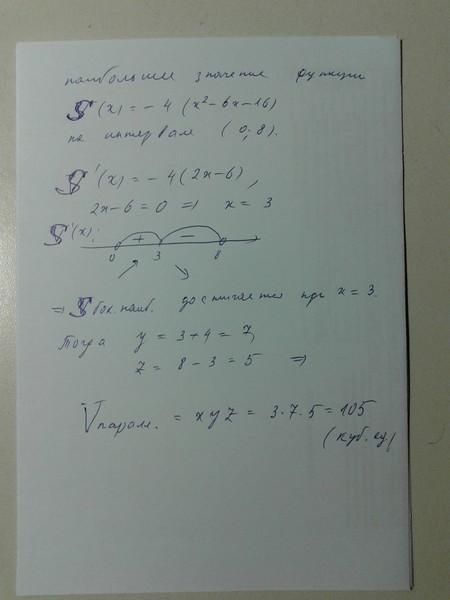 наибольшее значение функции
S(x) = -4(x²-6x-16)
на интервале (0; 8).
S'(x) = -4(2x-6),
2x-6=0 => x = 3
S'(x):
+ -
0 3 8
=> S бок. наиб. достигается при x = 3.
Тогда y = 3+4 = 7,
z = 8-3 = 5 =>
V паралл. = xyz = 3·7·5 = 105
(куб. ед)